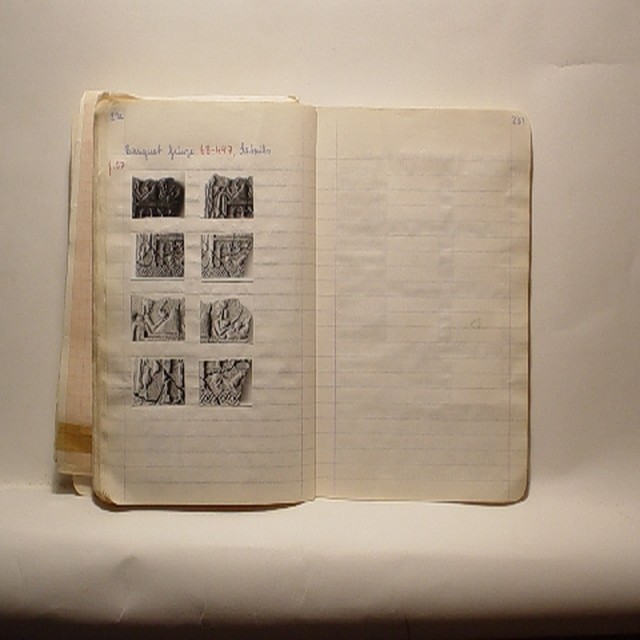 Banquet frieze 68-447, details
p.57
231